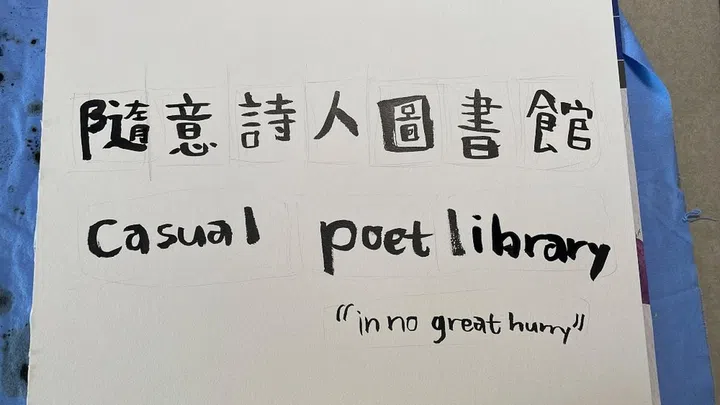 隨意詩人圖書館
casual poet library
"in no great hurry"